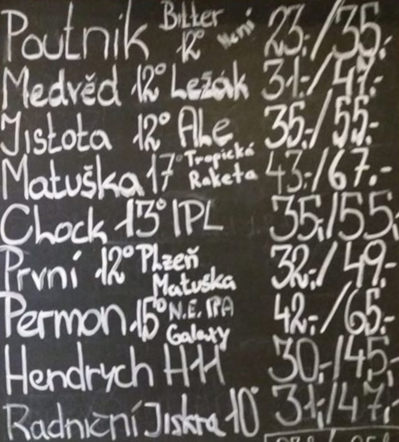 Poutník Bitter 12° Není 23,-/35,-
Medvěd 12° Ležák 31,-/47,-
Jistota 12° Ale 35,-/55,-
Matuška 17° Tropická Raketa 43,-/67,-
Chock 13° IPL 35,-/55,-
První 12° Plzeň Matuška 32,-/49,-
Permon 15° N.E. IPA Galaxy 42,-/65,-
Hendrych H11 30,-/45,-
Radniční Jiskra 10° 31,-/47,-